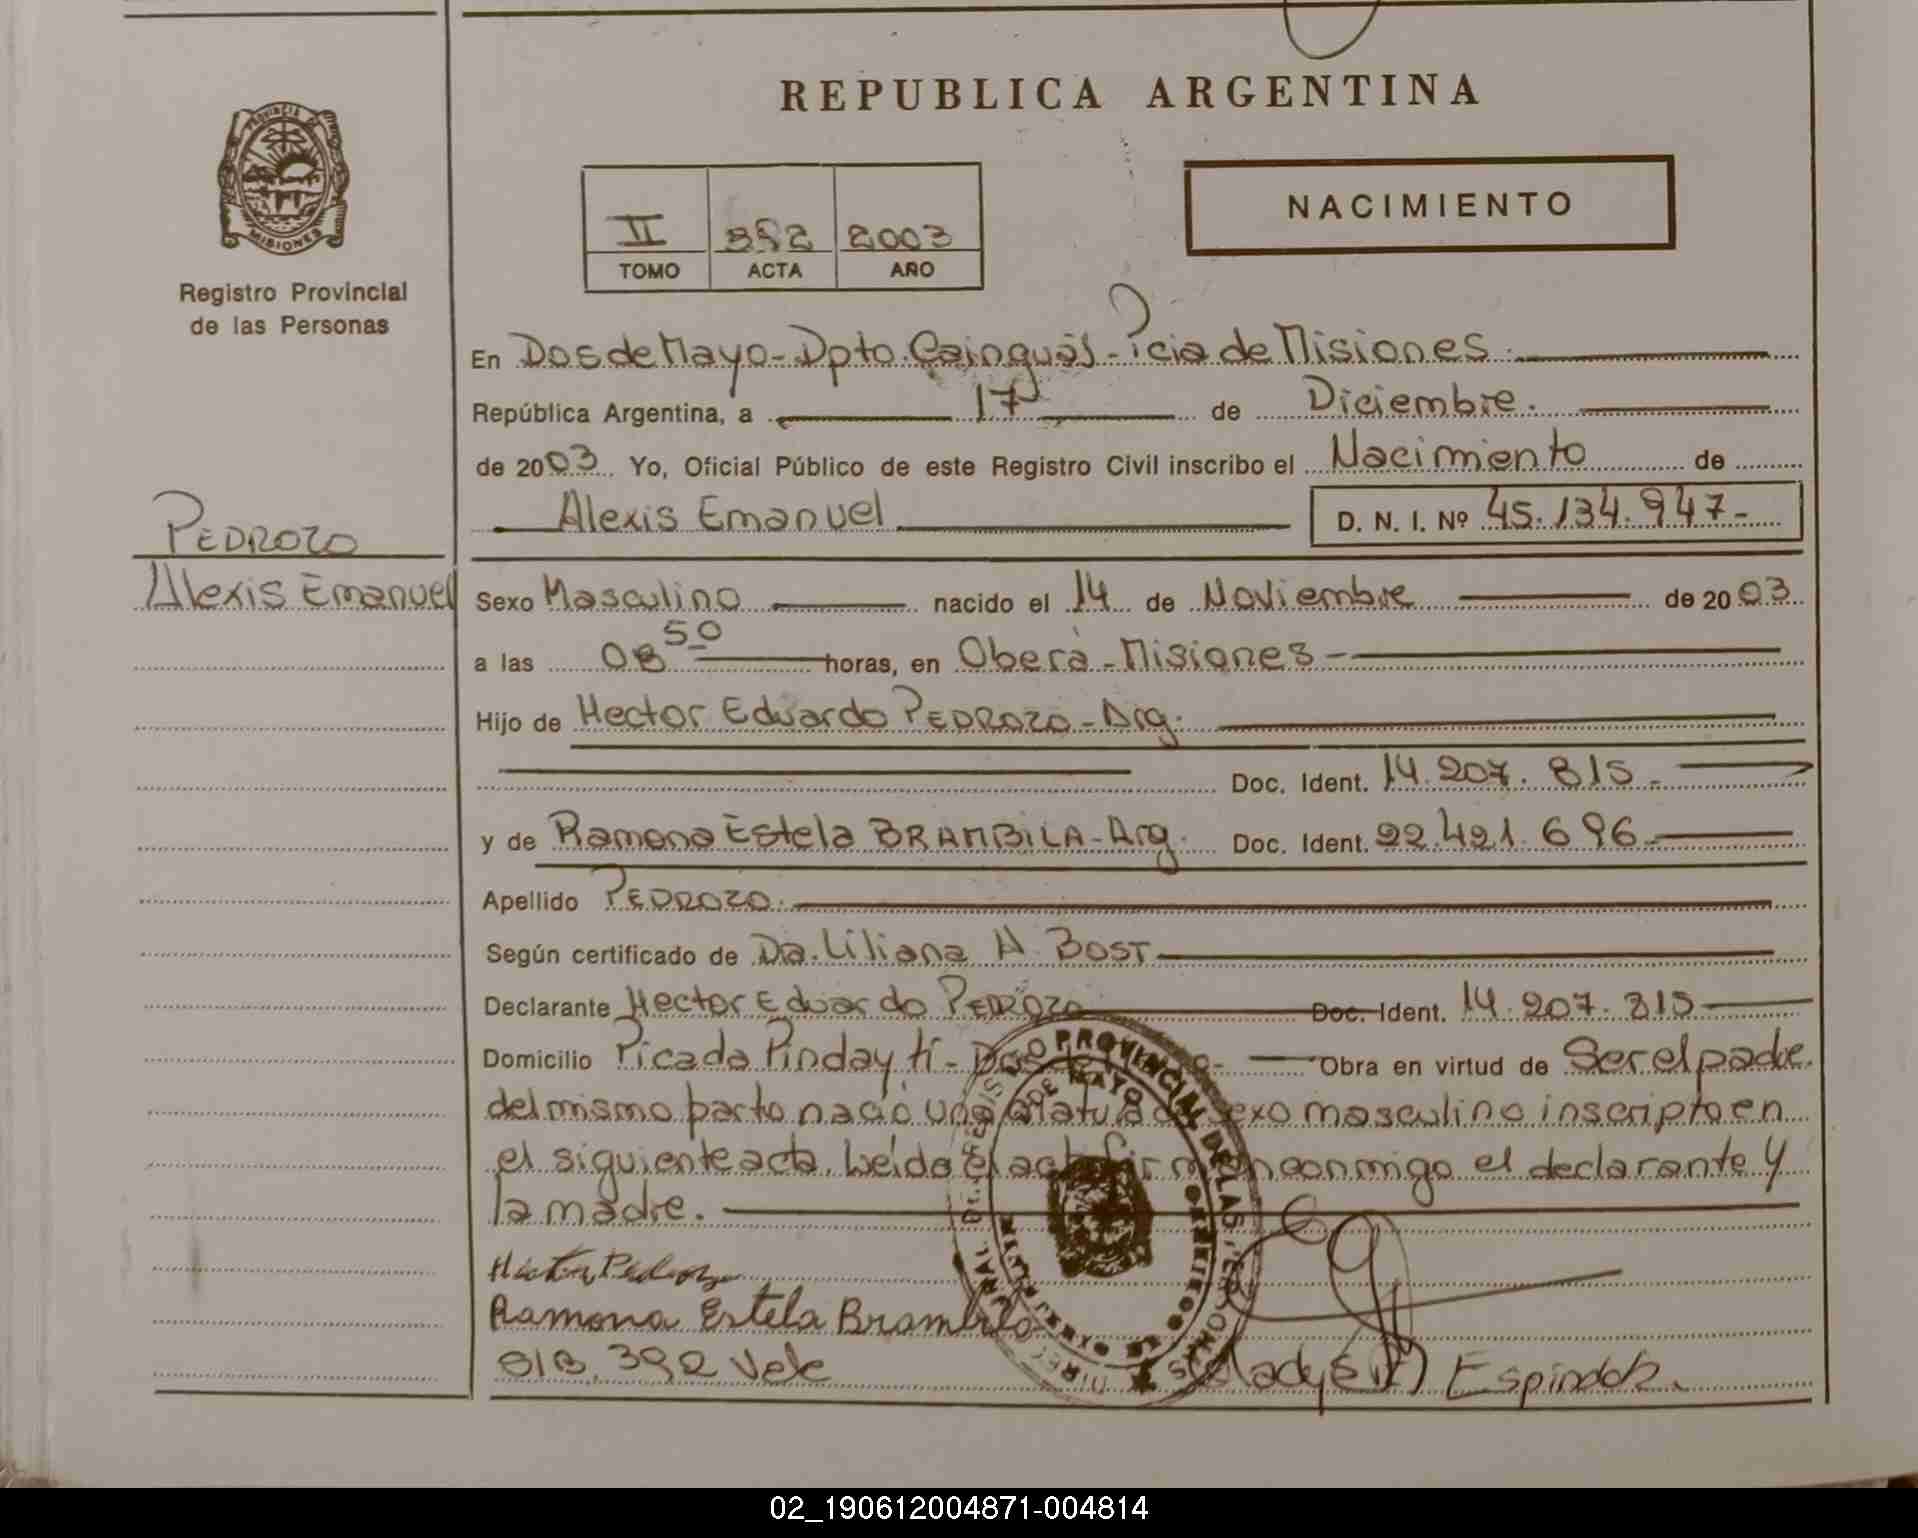 REPUBLICA ARGENTINA
PROVINCIA DE
MISIONES
Registro Provincial
de las Personas
II 392 2003
TOMO ACTA AÑO
NACIMIENTO
En Dos de Mayo - Dpto. Cainguás - Pcia de Misiones.
República Argentina, a 17 de Diciembre.
de 2003 Yo, Oficial Público de este Registro Civil inscribo el Nacimiento de
Alexis Emanuel D. N. I. Nº 45.134.947-
PEDROZO
Alexis Emanuel
Sexo Masculino nacido el 14 de Noviembre de 2003
a las 08 50 horas, en Oberá - Misiones -
Hijo de Hector Eduardo PEDROZO - Arg.
Doc. Ident. 14.207.815.-
y de Ramona Estela BRAMBILA - Arg. Doc. Ident. 22.421.696-
Apellido PEDROZO.
Según certificado de Dra. Liliana A. BOST
Declarante Hector Eduardo PEDROZO Doc. Ident. 14.207.815
Domicilio Picada Pindaytí - Dos de Obra en virtud de Ser el padre.
del mismo parto nació una criatura de sexo masculino inscripto en
el siguiente acta. Leída el acta firman conmigo el declarante y
la madre.
Hector Pedrozo
Ramona Estela Brambila
392 Vale
Gladys Espindola.
REGISTRO PROVINCIAL DE LAS PERSONAS
DOS DE MAYO
02_190612004871-004814